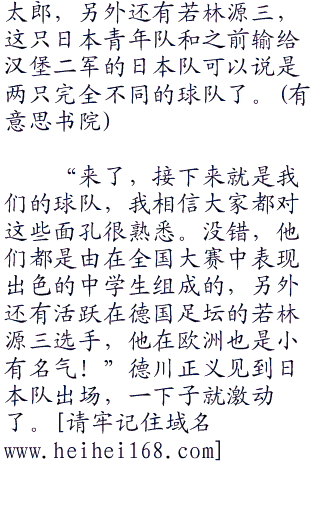 太郎，另外还有若林源三，
这只日本青年队和之前输给
汉堡二军的日本队可以说是
两只完全不同的球队了。(有
意思书院)
“来了，接下来就是我
们的球队，我相信大家都对
这些面孔很熟悉。没错，他
们都是由在全国大赛中表现
出色的中学生组成的，另外
还有活跃在德国足坛的若林
源三选手，他在欧洲也是小
有名气！”德川正义见到日
本队出场，一下子就激动
了。[请牢记住域名
www.heihei168.com]